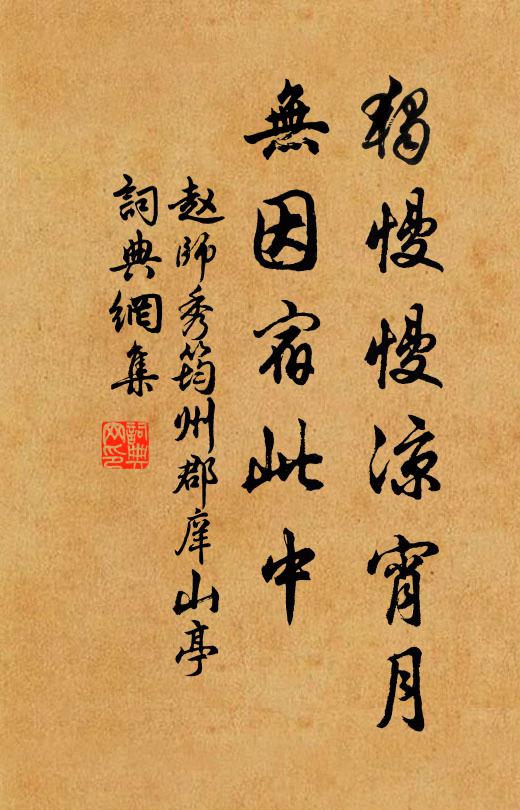 獨慢慢涼宵月
無因宿此中
赵師秀筠州郡庠山亭
詞典網集
詞典网印